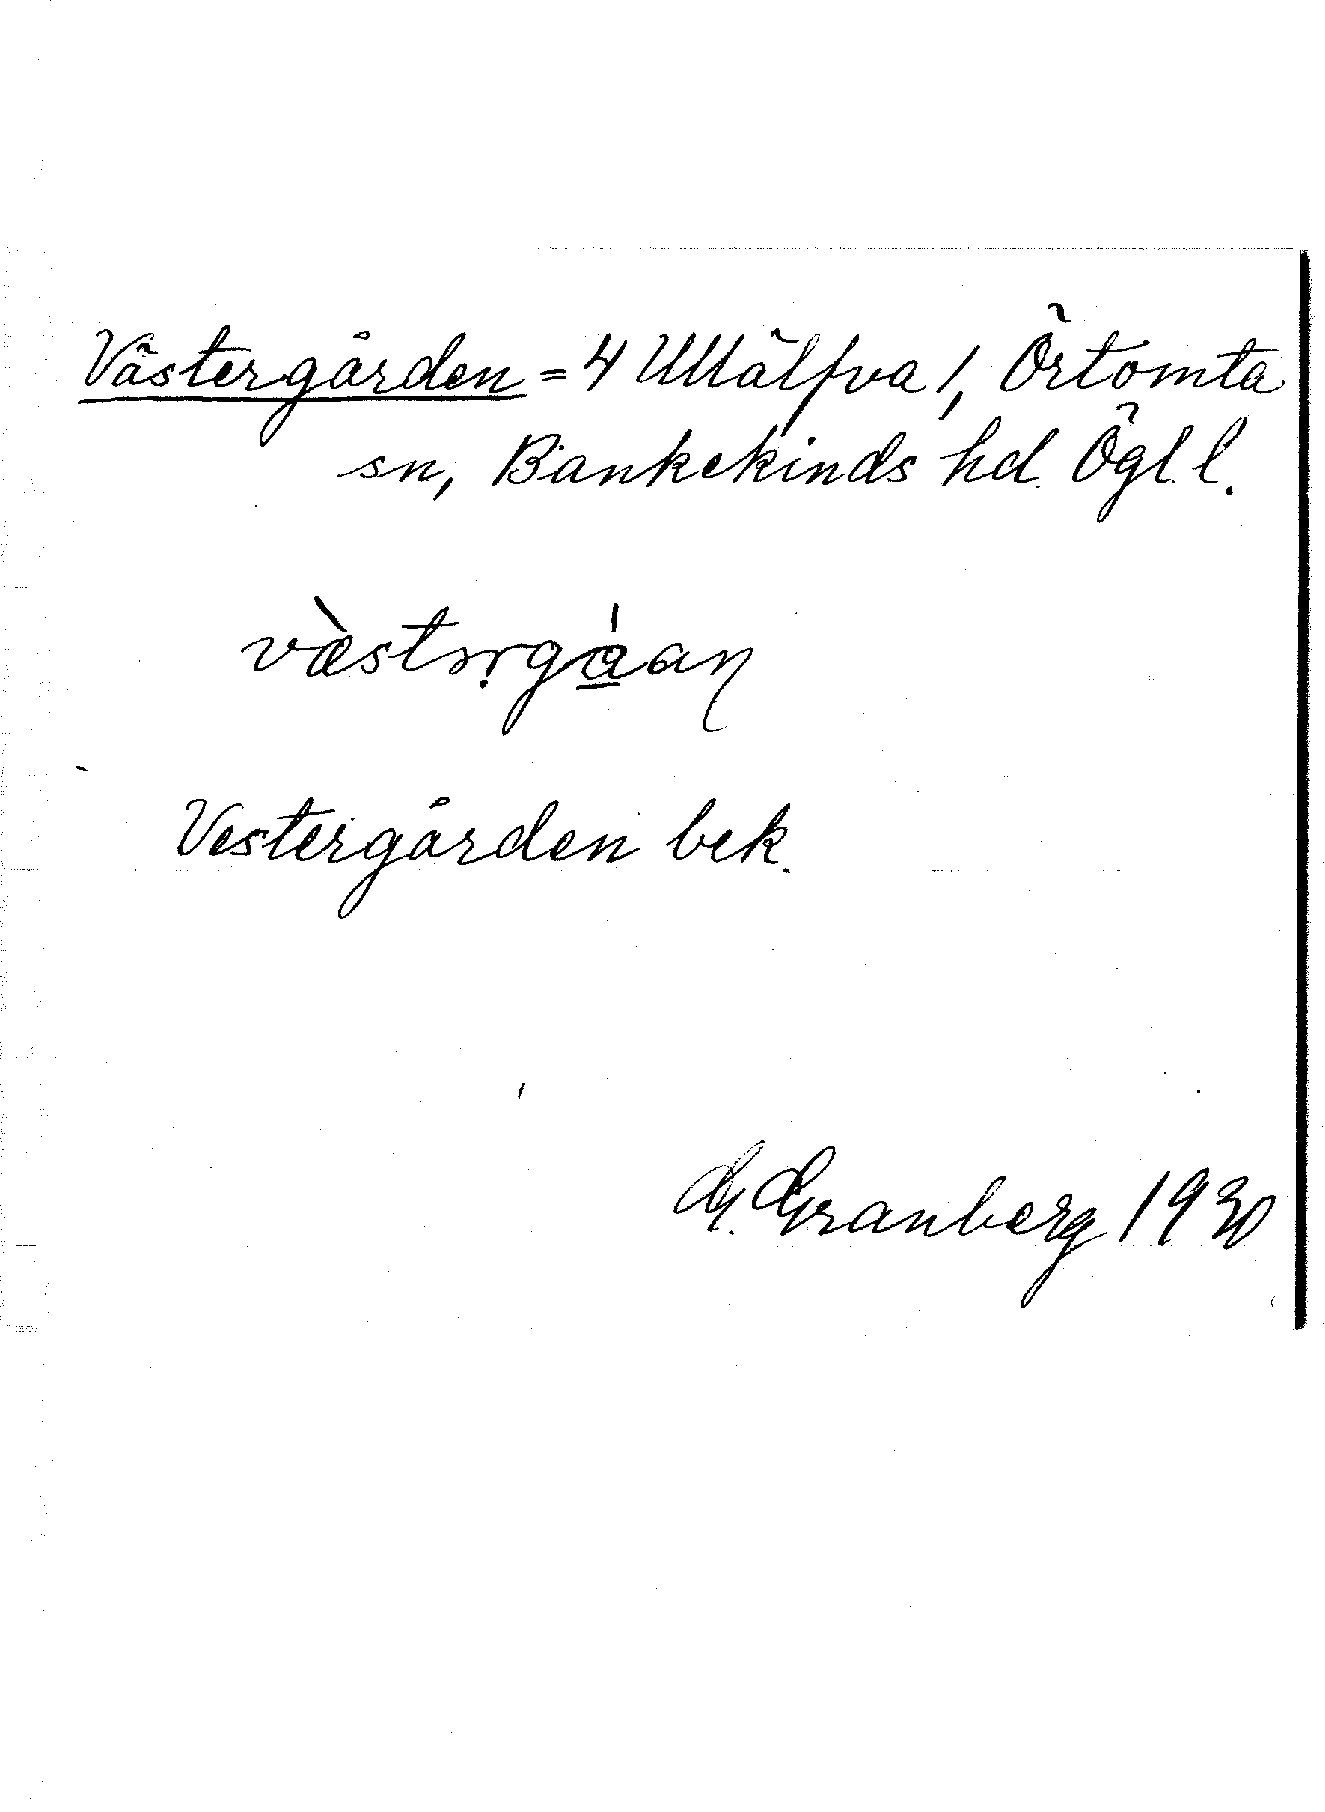 Västergården = 4 Ullälfva 1, Örtomta
sn, Bankekinds hd. Ögl. l.
væ̀stɹṛgǻ̲aɳ
Vestergården bek.
G. Granberg 1930